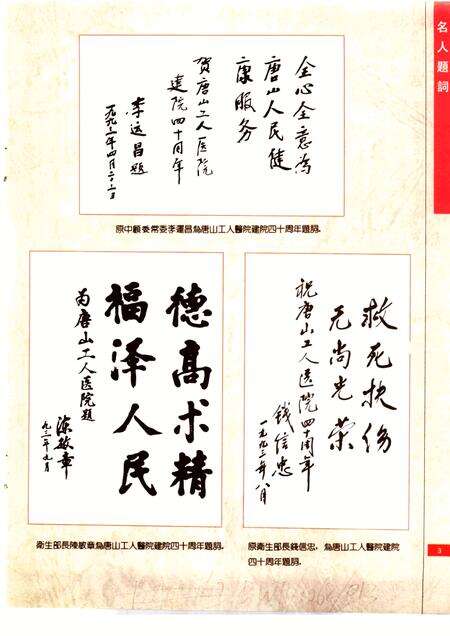 名人題詞
全心全意為
唐山人民健
康服务
贺唐山工人医院
建院四十周年
李运昌题
原中顧委常委李運昌為唐山工人醫院建院四十周年題詞。
德高术精
福泽人民
为唐山工人医院题
陈敏章
九二年九月
衛生部長陳敏章為唐山工人醫院建院四十周年題詞。
救死扶伤
无尚光荣
祝唐山工人医院四十周年
钱信忠
一九九二年八月
原衛生部長錢信忠，為唐山工人醫院建院
四十周年題詞。
3